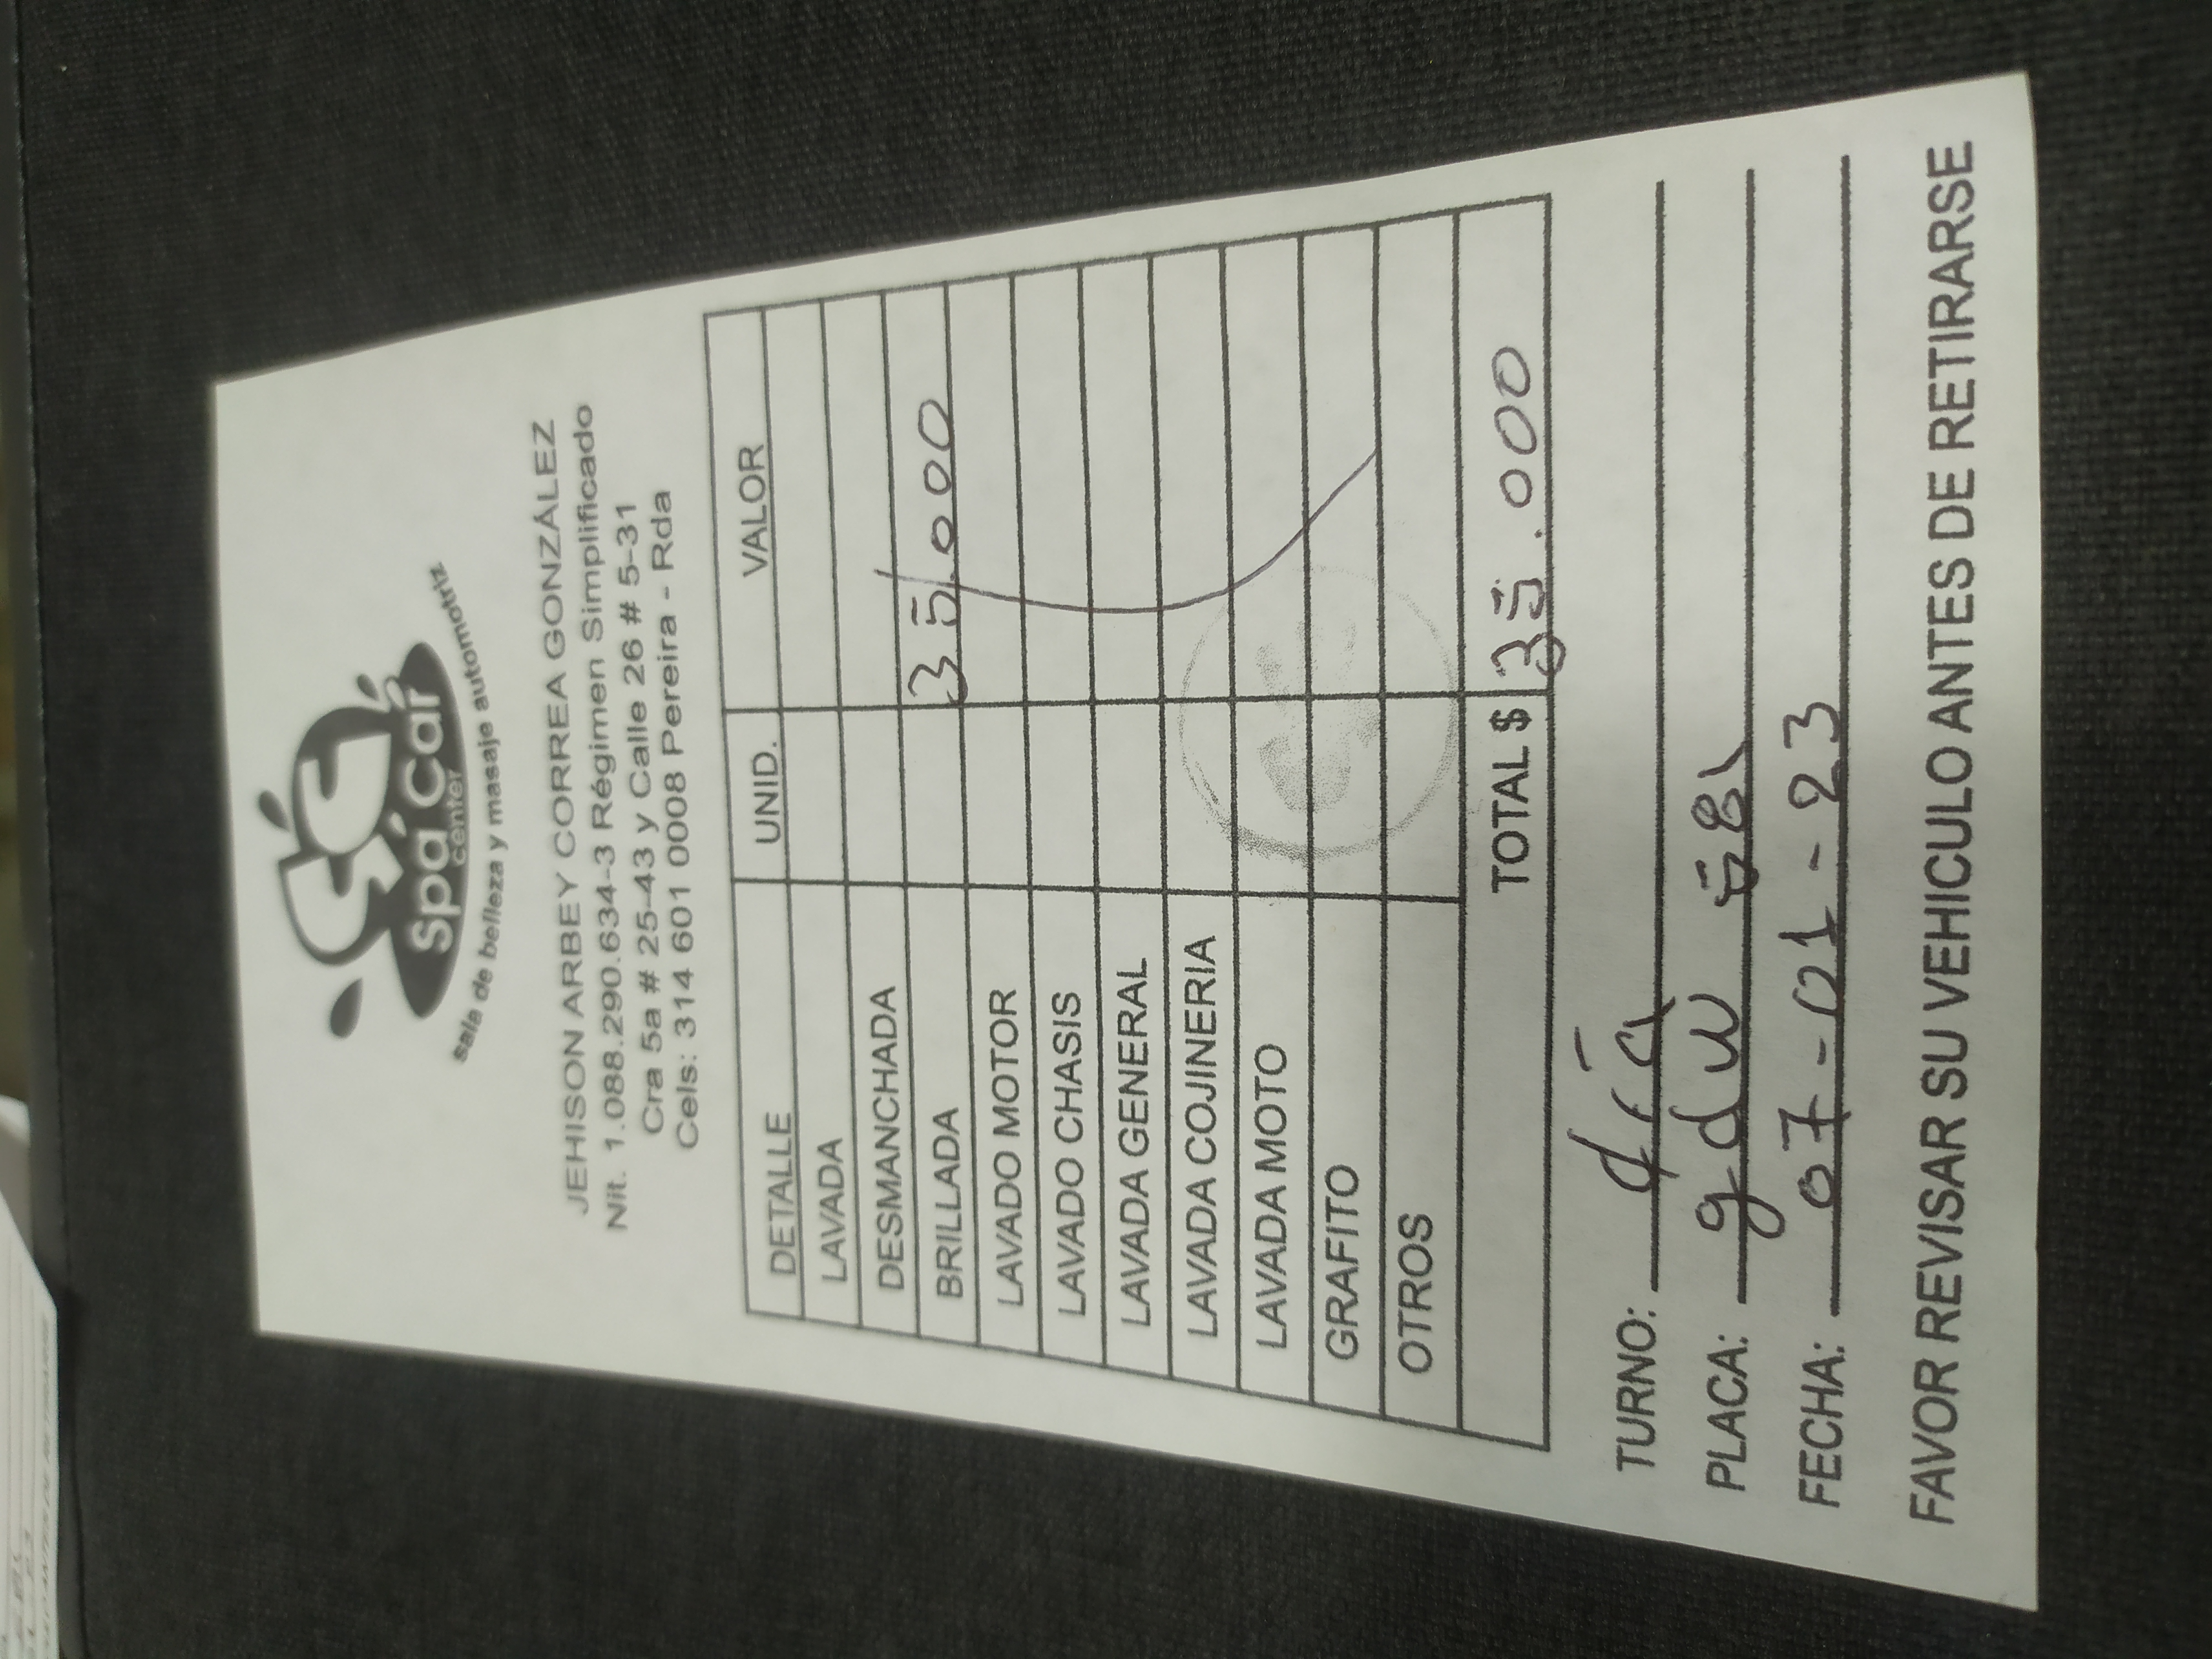 Spa Car
center
sala de belleza y masaje automotriz
JEHISON ARBEY CORREA GONZÁLEZ
Nit. 1.088.290.634-3 Régimen Simplificado
Cra 5a # 25-43 y Calle 26 # 5-31
Cels: 314 601 0008 Pereira - Rda
DETALLE UNID. VALOR
LAVADA
DESMANCHADA
BRILLADA 35.000
LAVADO MOTOR
LAVADO CHASIS
LAVADA GENERAL
LAVADA COJINERIA
LAVADA MOTO
GRAFITO
OTROS
TOTAL $ 35.000
TURNO: día
PLACA: gdw
FECHA: 07-01-23
FAVOR REVISAR SU VEHICULO ANTES DE RETIRARSE